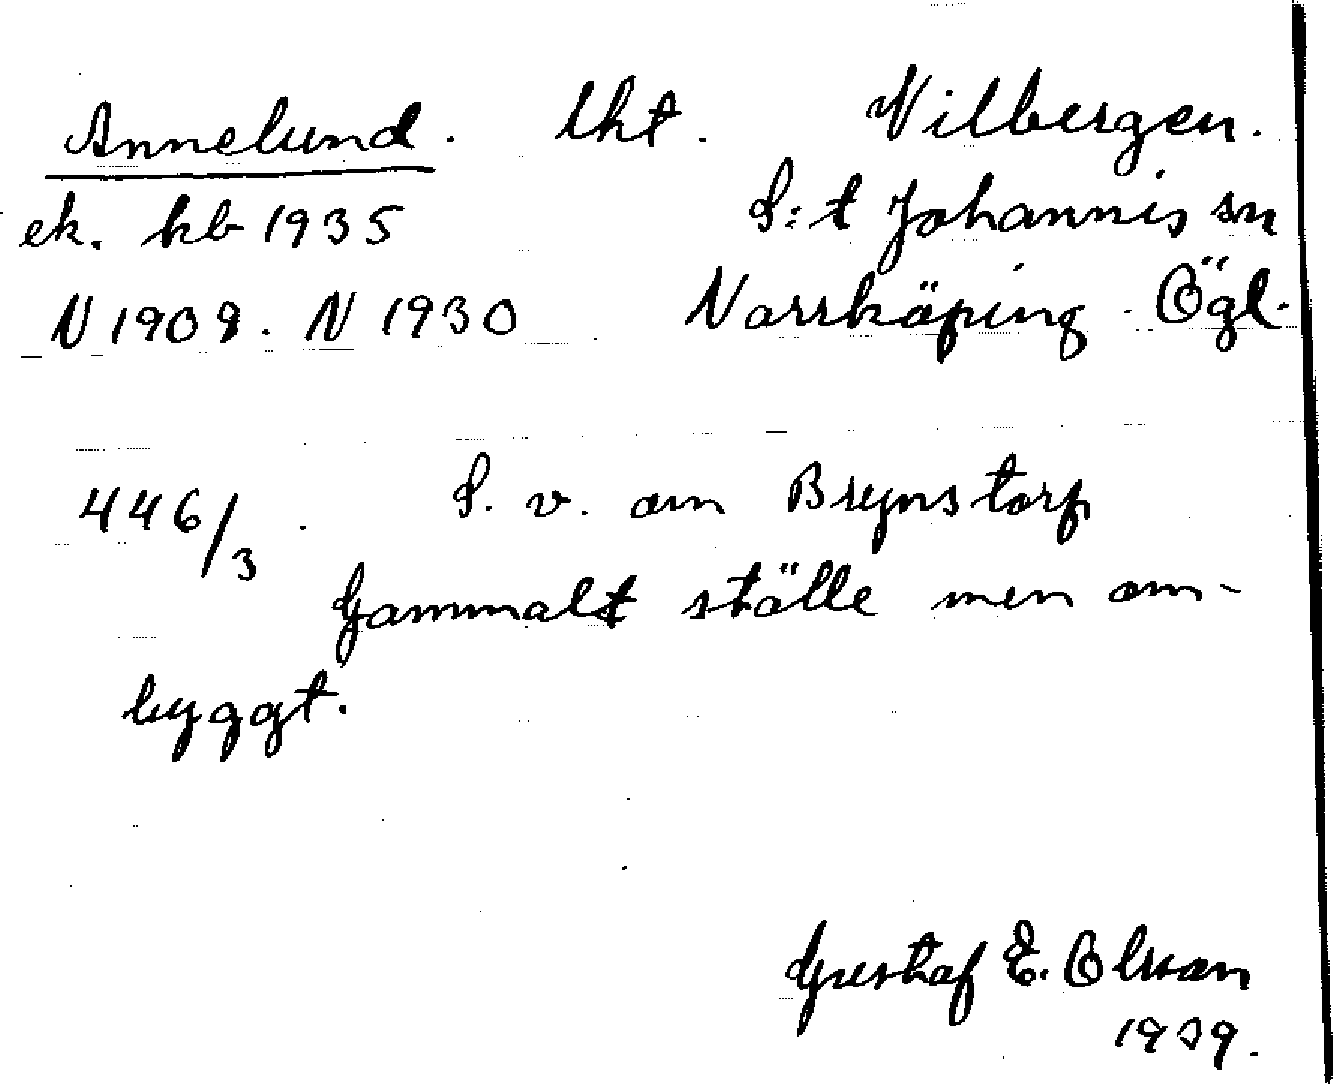 Annelund. lht. Vilbergen.
ek. kb 1935 S:t Johannis sn
N 1909. N 1930 Norrköping. Ögl.
446/3. S. v. om Brynstorp
Gammalt ställe men om-
byggt.
Gustaf E. Olsson
1939.